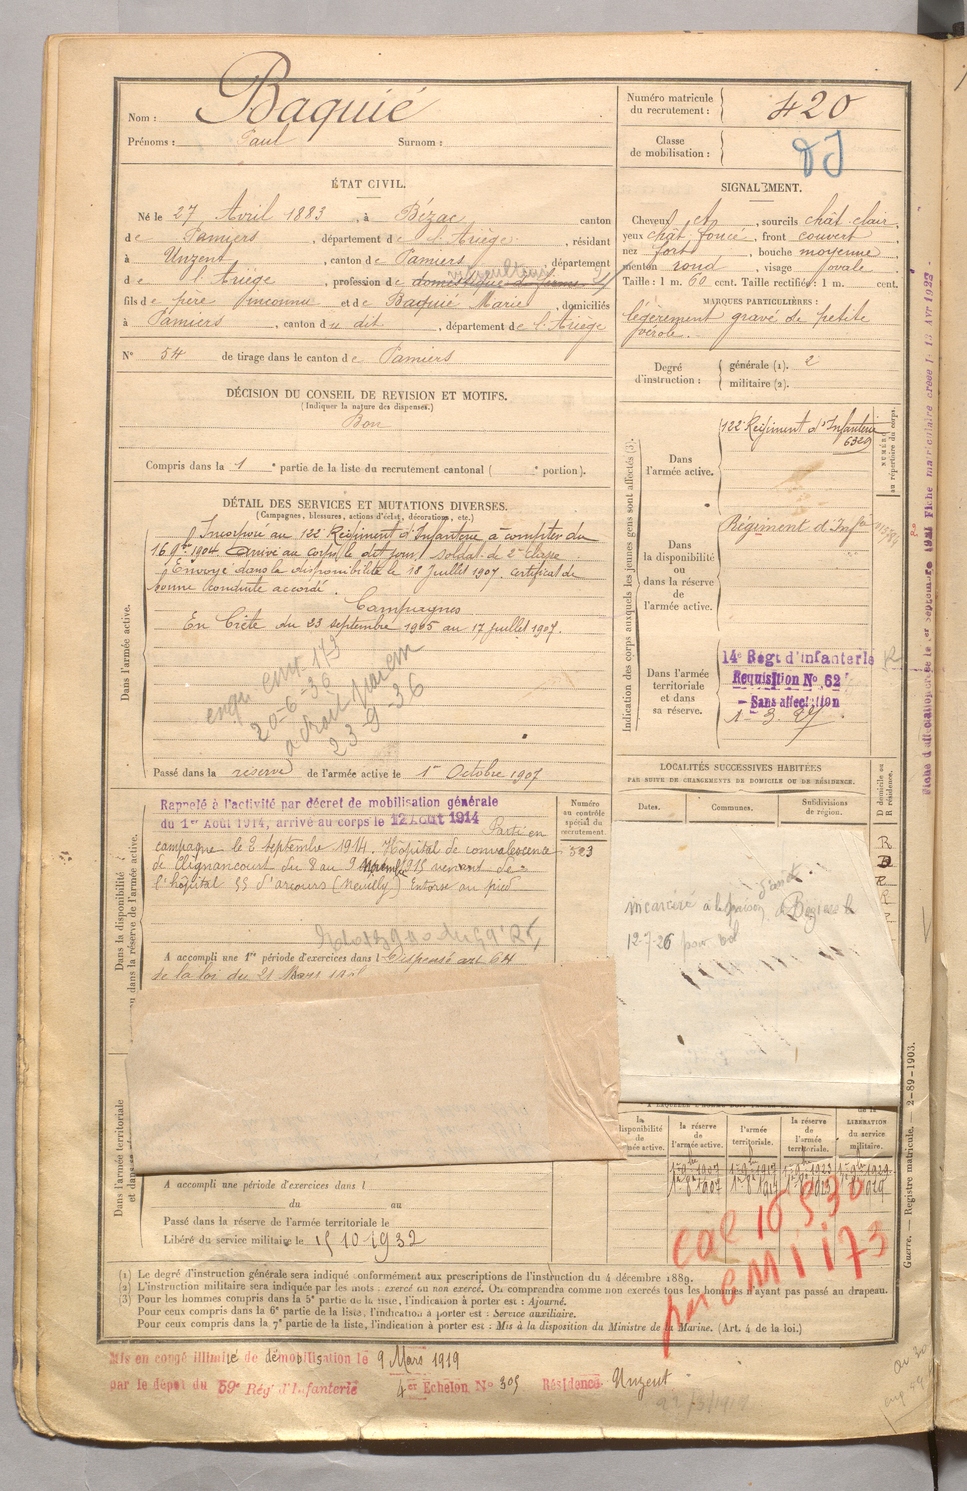 Nom : Baquié
Prénoms : Paul Surnom :
Numéro matricule du recrutement : 420
Classe de mobilisation :
ÉTAT CIVIL.
Né le 27 Avril 1883, à Bézac canton
de Pamiers, département de l'Ariège, résidant
à Unzent, canton de Pamiers département
de l'Ariège, profession de domestique de ferme
fils de père inconnu et de Baquié Marie domiciliés
à Pamiers, canton du dit, département de l'Ariège
N° 54 de tirage dans le canton de Pamiers
SIGNALEMENT.
Cheveux ct, sourcils chât. clair,
yeux chât foncé, front couvert
nez fort, bouche moyenne
menton rond, visage ovale
Taille : 1 m. 60 cent. Taille rectifiée : 1 m. cent.
MARQUES PARTICULIÈRES :
légèrement gravé de petite
vérole.
Degré d'instruction : générale (1). 2
militaire (2).
DÉCISION DU CONSEIL DE REVISION ET MOTIFS.
(Indiquer la nature des dispenses.)
Bon
Compris dans la 1e partie de la liste du recrutement cantonal ( e portion).
DÉTAIL DES SERVICES ET MUTATIONS DIVERSES.
(Campagnes, blessures, actions d'éclat, décorations, etc.)
Dans l'armée active.
Incorporé au 122e Régiment d'Infanterie à compter du
16 9bre 1904. Arrivé au corps le dit jour, soldat de 2e classe
Envoyé dans la disponibilité le 18 Juillet 1907. certificat de
bonne conduite accordé.
Campagnes
En Crète du 23 septembre 1905 au 17 juillet 1907.
20-6-36
23-9-36
Passé dans la réserve de l'armée active le 1er Octobre 1907
Indication des corps auxquels les jeunes gens sont affectés (3).
Dans l'armée active.
122e Régiment d'Infanterie
6329
NUMÉRO au répertoire du corps.
Dans la disponibilité ou dans la réserve de l'armée active.
Régiment d'Infie
Dans l'armée territoriale et dans sa réserve.
14e Régt d'Infanterie
Requisition No 62
- Sans affectation
1-3-27
LOCALITÉS SUCCESSIVES HABITÉES
PAR SUITE DE CHANGEMENTS DE DOMICILE OU DE RÉSIDENCE.
Dates. Communes. Subdivisions de région. D domicile ou R résidence.
R
D
R
Dans la disponibilité ou dans la réserve de l'armée active.
Rappelé à l'activité par décret de mobilisation générale
du 1er Août 1914, arrivé au corps le 12 Août 1914 Parti en
campagne le 2 septembre 1914. Hôpital de convalescence
de Clignancourt du 8 au 9 Novembre 1915 venant de
l'hôpital 55 d'arcourt (Neuilly) Entorse au pied
Numéro au contrôle spécial du recrutement.
523
A accompli une 1re période d'exercices dans l Dispensé art 64
de la loi du 21 Mars
incarcéré à la maison
12-7-26 pour vol
la disponibilité de l'armée active. la réserve de l'armée active. l'armée territoriale. la réserve de l'armée territoriale. LIBÉRATION du service militaire.
Dans l'armée territoriale
A accompli une période d'exercices dans l
du au
Passé dans la réserve de l'armée territoriale le
Libéré du service militaire le 15 10 1932
(1) Le degré d'instruction générale sera indiqué conformément aux prescriptions de l'instruction du 4 décembre 1889.
(2) L'instruction militaire sera indiquée par les mots : exercé ou non exercé. On comprendra comme non exercés tous les hommes n'ayant pas passé au drapeau.
(3) Pour les hommes compris dans la 5e partie de la liste, l'indication à porter est : Ajourné.
Pour ceux compris dans la 6e partie de la liste, l'indication à porter est : Service auxiliaire.
Pour ceux compris dans la 7e partie de la liste, l'indication à porter est : Mis à la disposition du Ministre de la Marine. (Art. 4 de la loi.)
Guerre. — Registre matricule. — 2-89-1903.
Mis en congé illimité de démobilisation le 9 Mars 1919
par le dépôt du 59e Rég d'Infanterie 4er Echelon No 305 Résidence Unzent